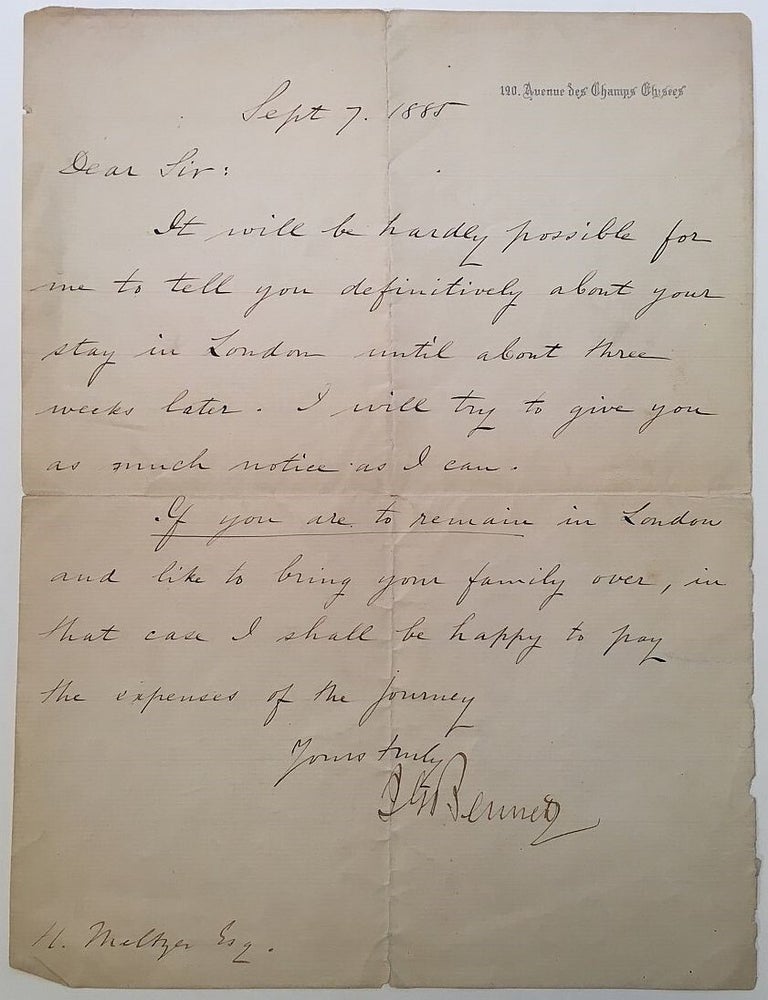 120. Avenue des Champs Elysees
Sept 7. 1885
Dear Sir:
It will be hardly possible for
me to tell you definitively about your
stay in London until about three
weeks later. I will try to give you
as much notice as I can.
If you are to remain in London
and like to bring your family over, in
that case I shall be happy to pay
the expenses of the journey
Yours truly
J G Bennett
H. Meltzer Esq.